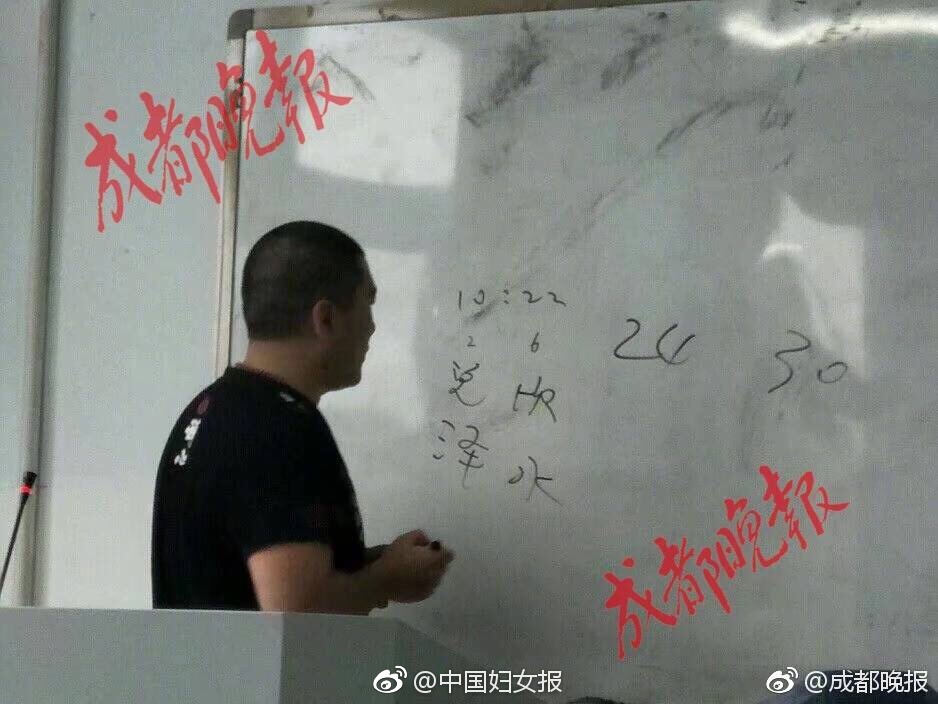 成都晚报
10:22
24
30
2 6
兑 坎
泽 水
成都晚报
@中国妇女报
@成都晚报